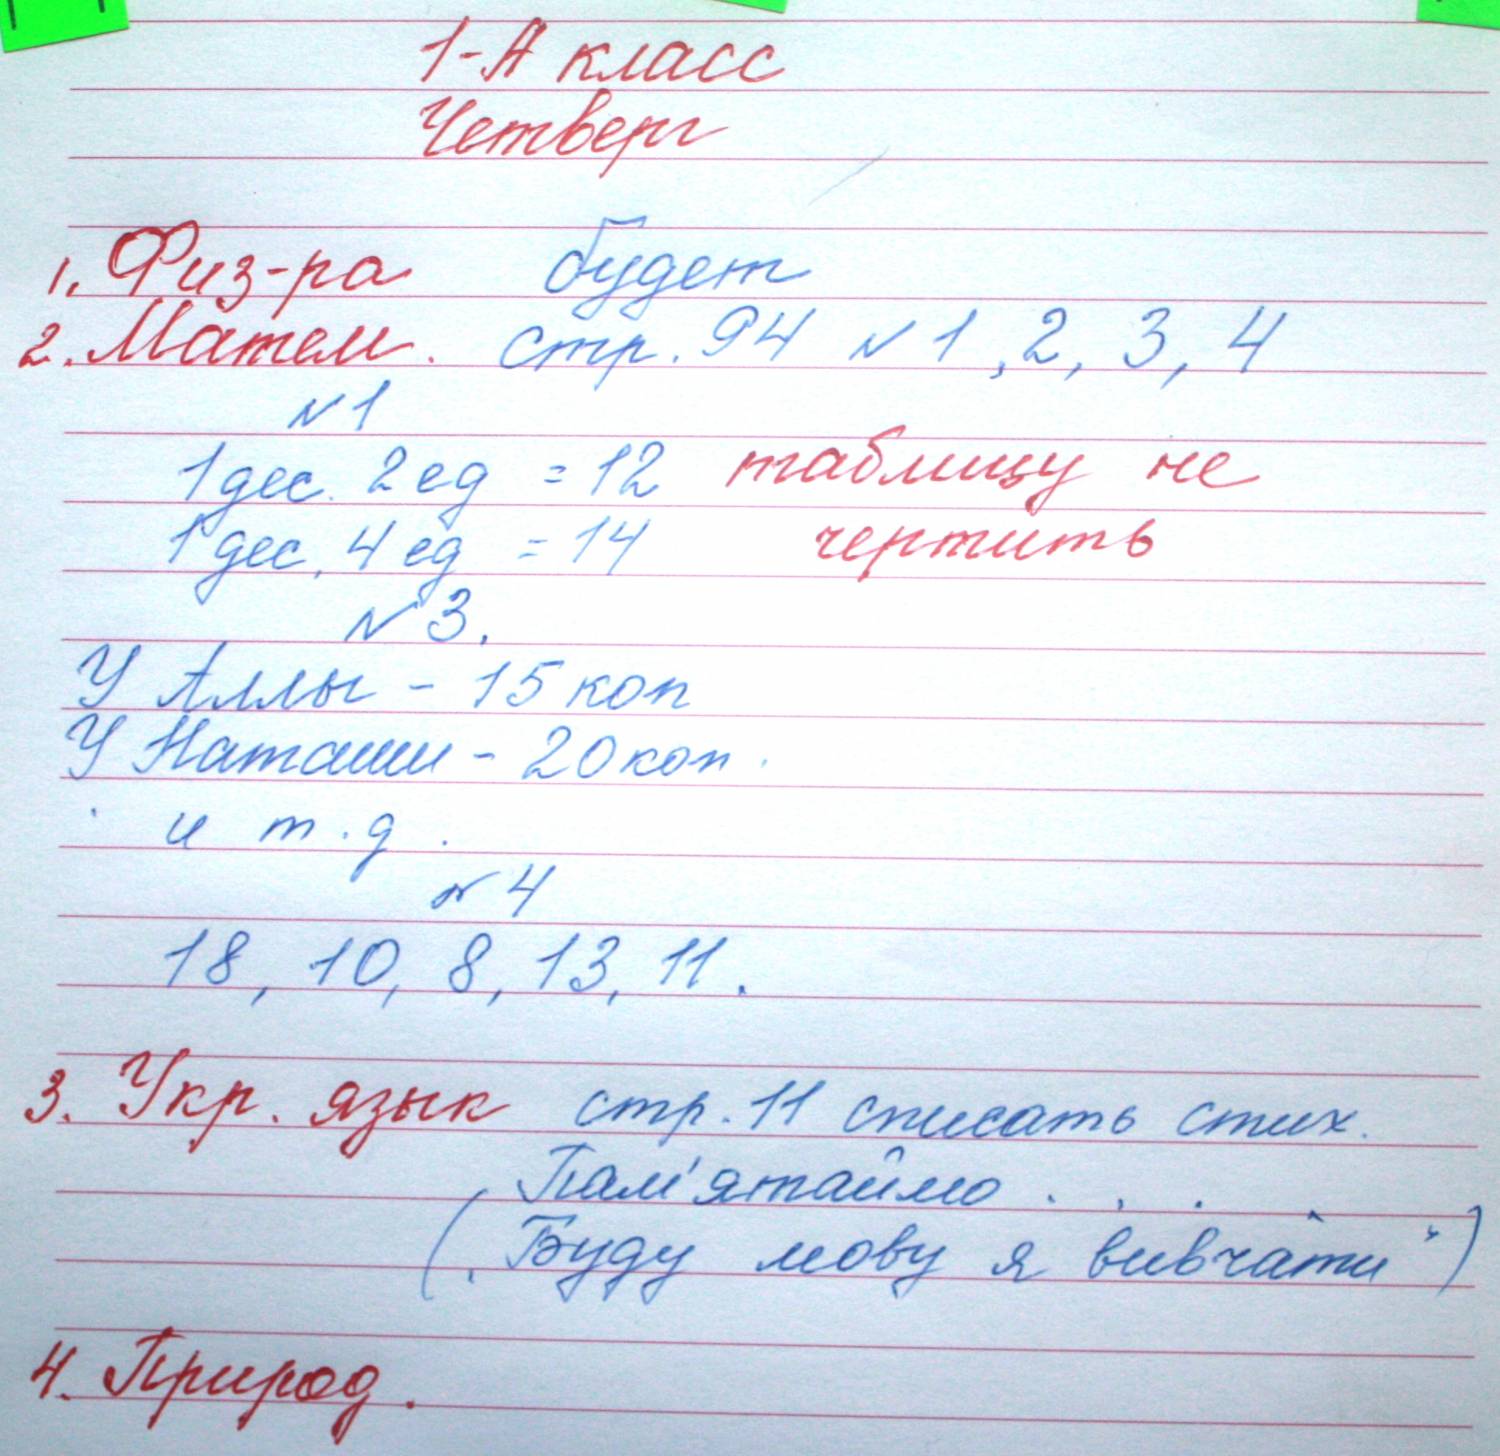 1-А класс
Четверг
1. Физ-ра будет
2. Матем. стр. 94 № 1, 2, 3, 4
№ 1
1 дес. 2 ед = 12 таблицу не
1 дес. 4 ед = 14 чертить
№ 3.
У Аллы - 15 коп
У Наташи - 20 коп.
и т.д.
№ 4
18, 10, 8, 13, 11.
3. Укр. язык стр. 11 списать стих.
Пам'ятаймо . . .
(„Буду мову я вивчати“)
4. Природ.